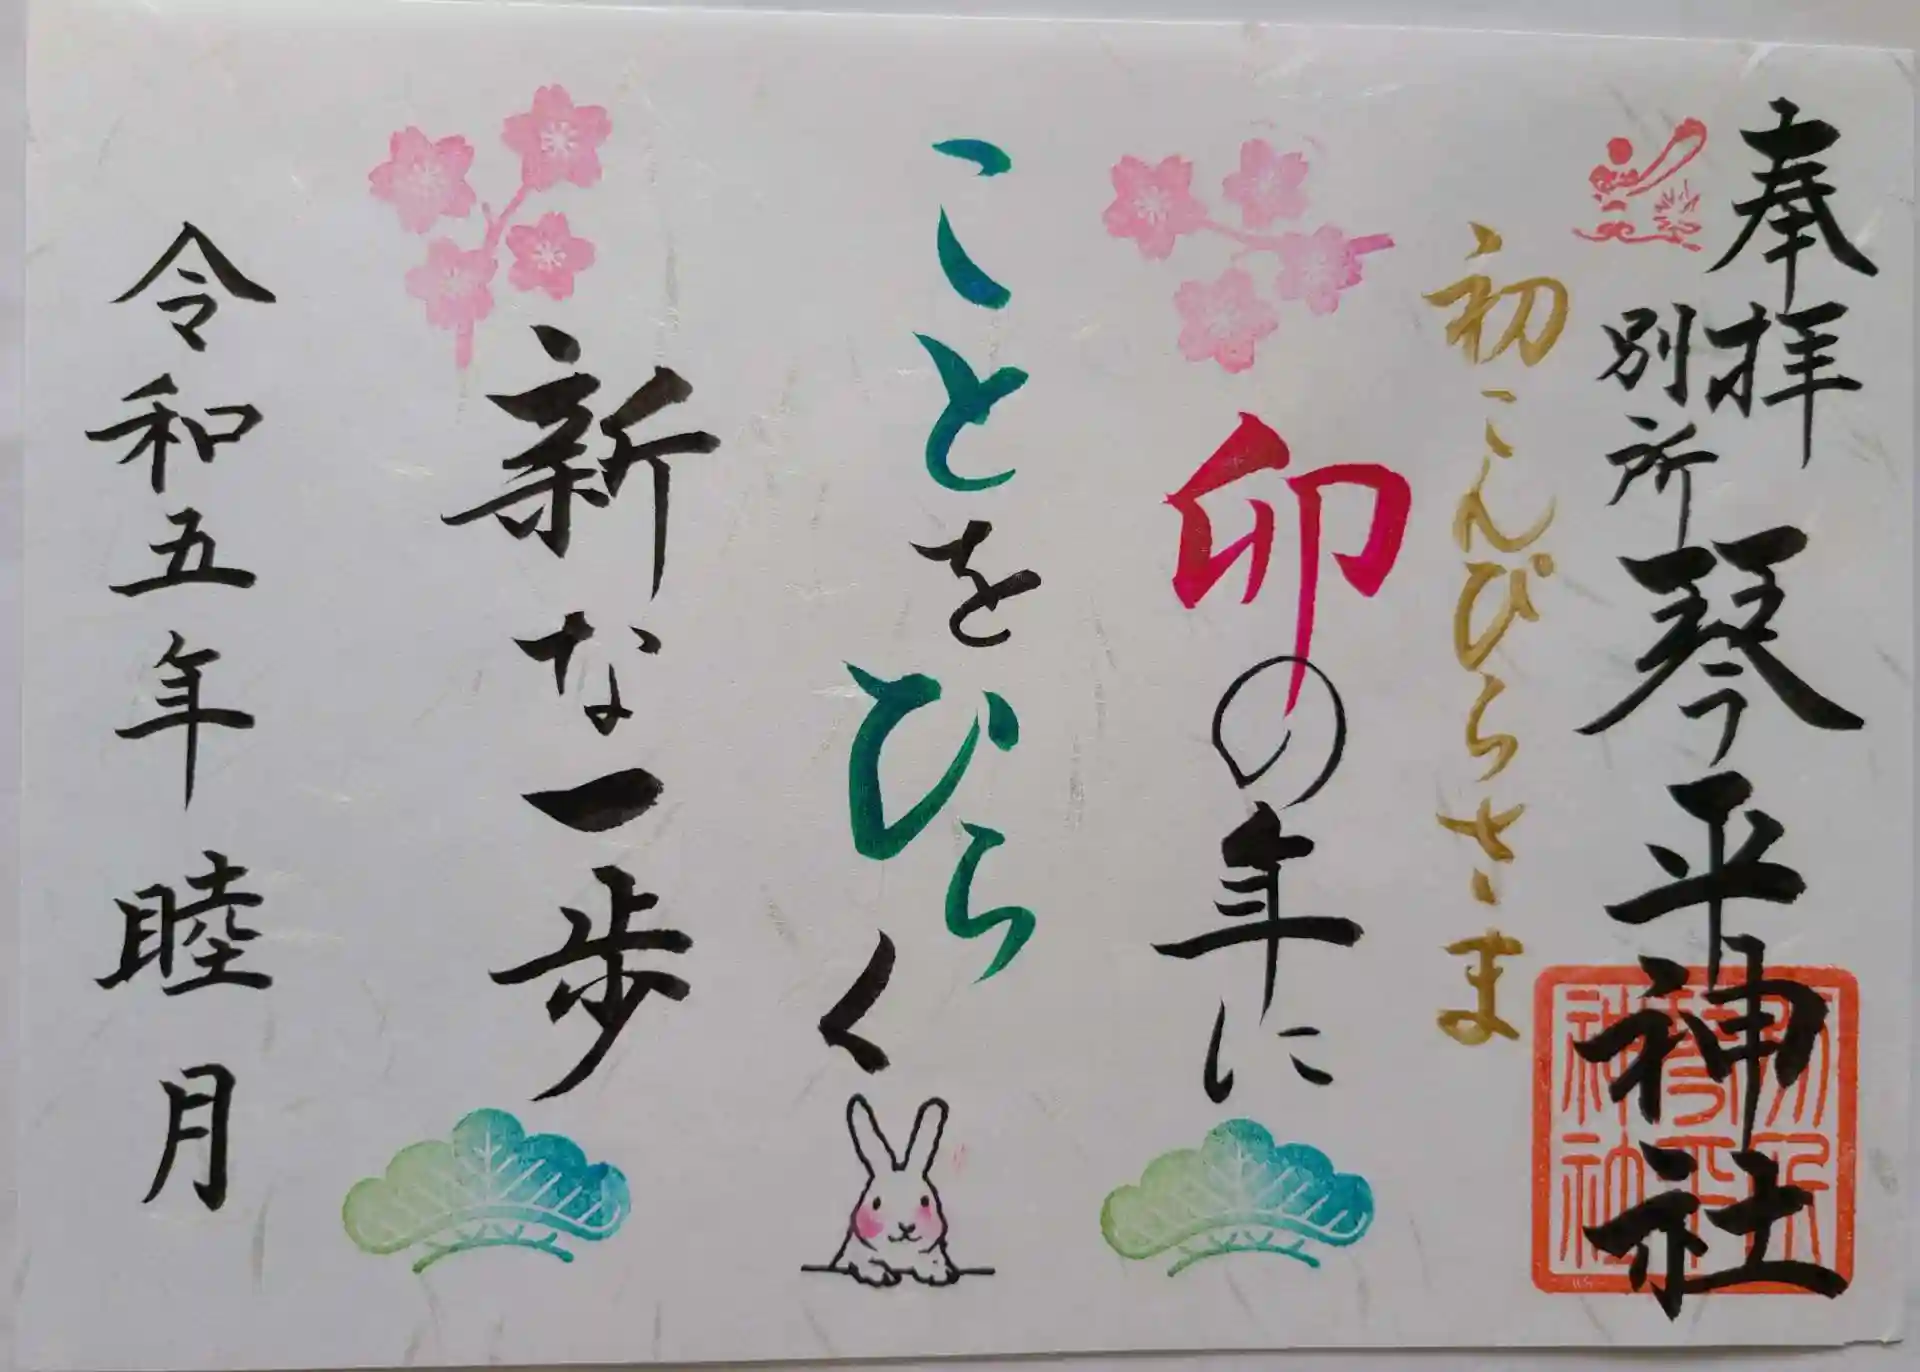 奉拝
別所琴平神社
初こんぴらさま
卯の年に
ことをひらく
新な一歩
令和五年睦月